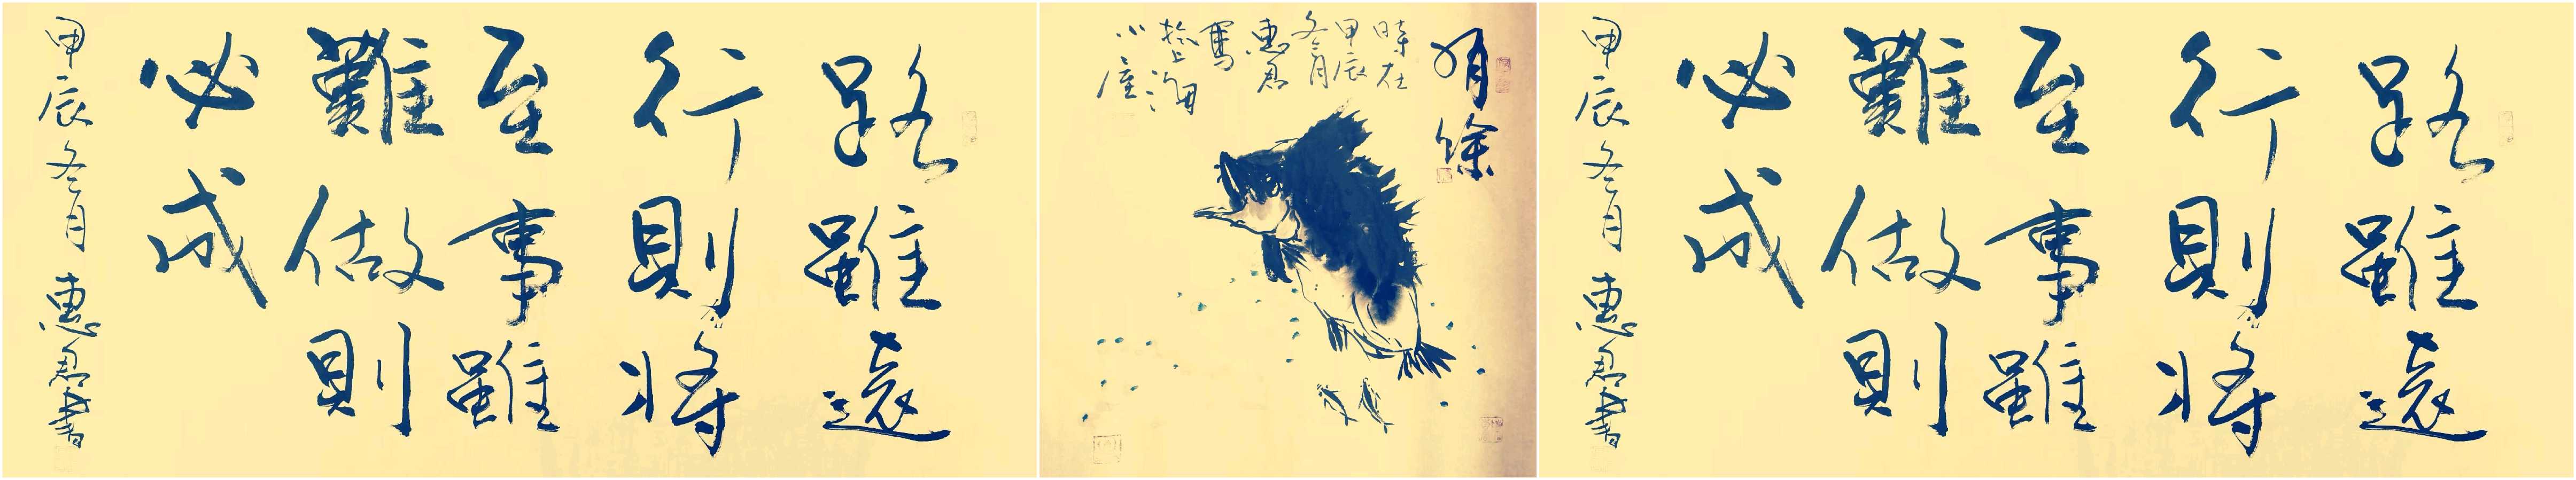 路雖遠
行則將
至事雖
難做則
必成
甲辰冬月惠君書
有餘
時在
甲辰
冬月
惠君
寫
於上
小
路雖遠
行則將
至事雖
難做則
必成
甲辰冬月惠君書